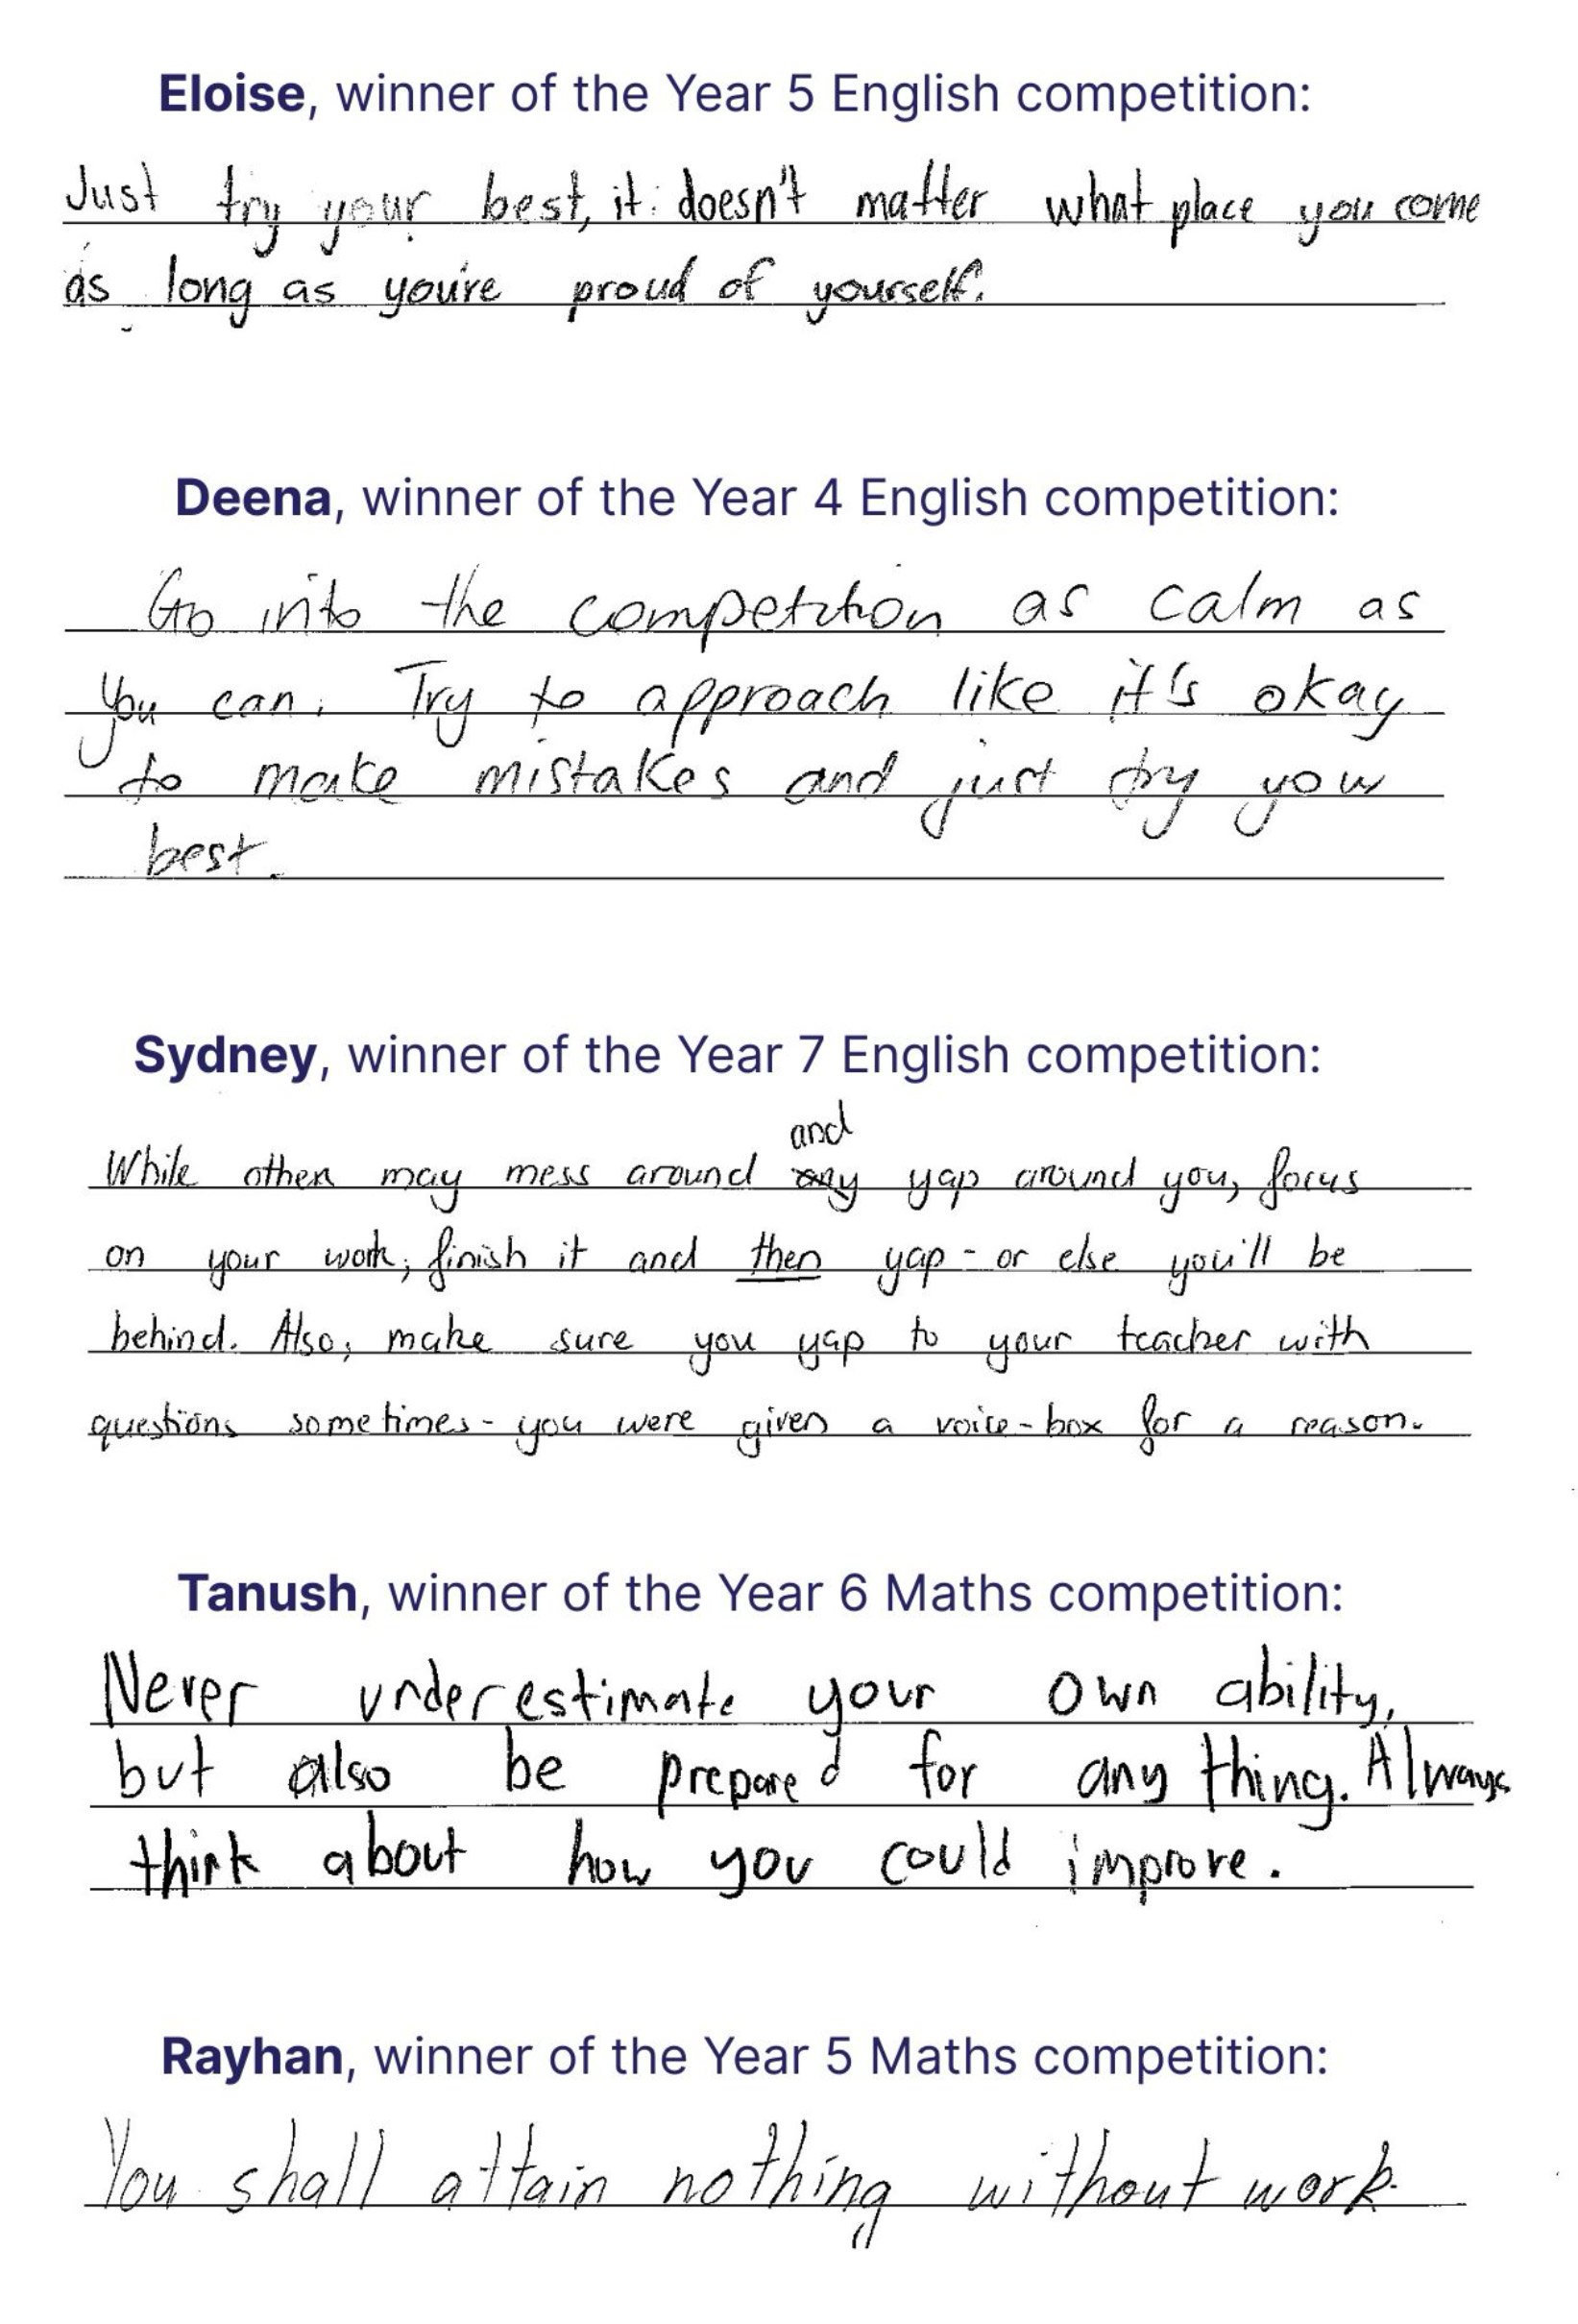 Eloise, winner of the Year 5 English competition:
Just try your best, it doesn't matter what place you come
as long as you're proud of yourself.
Deena, winner of the Year 4 English competition:
Go into the competition as calm as
you can. Try to approach like it's okay
to make mistakes and just try your
best.
Sydney, winner of the Year 7 English competition:
and
While others may mess around any yap around you, focus
on your work, finish it and then yap - or else you'll be
behind. Also, make sure you yap to your teacher with
questions sometimes - you were given a voice-box for a reason.
Tanush, winner of the Year 6 Maths competition:
Never underestimate your own ability,
but also be prepared for any thing. Always
think about how you could improve.
Rayhan, winner of the Year 5 Maths competition:
You shall attain nothing without work.